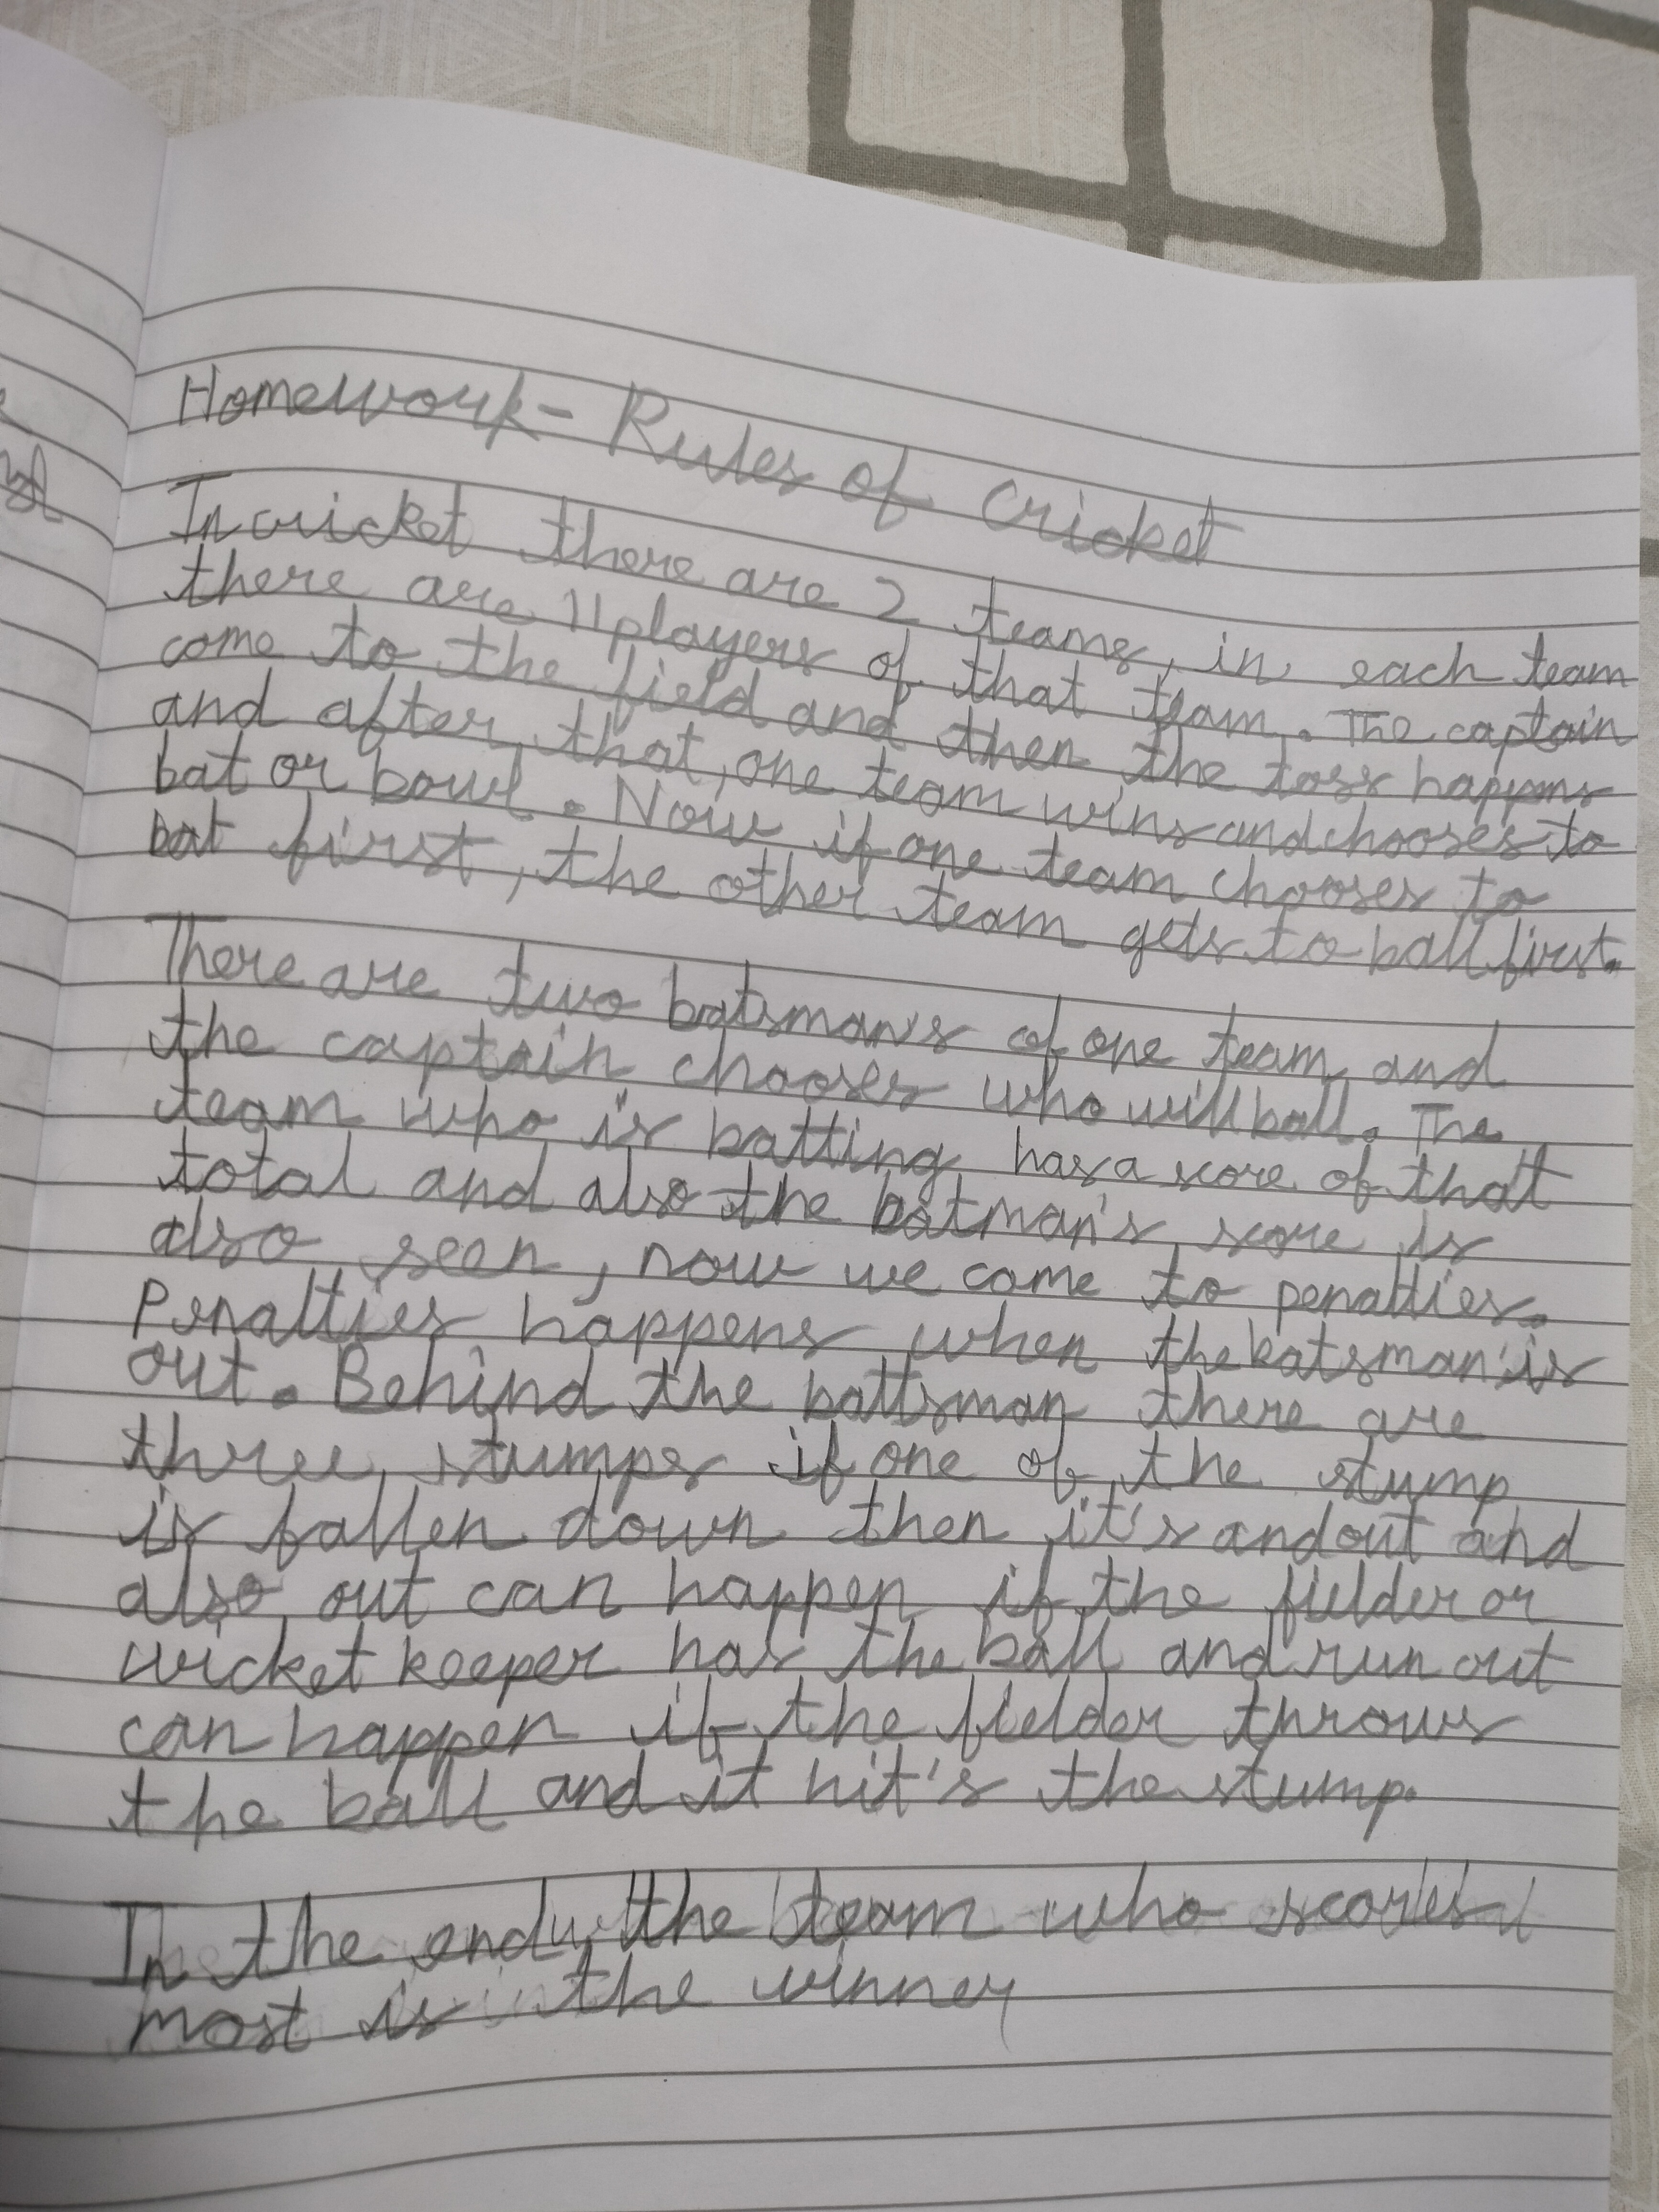 Homework - Rules of cricket
In cricket there are 2 teams, in each team
there are 11 players of that team. The captain
come to the field and then the toss happens
and after that, one team wins and chooses to
bat or bowl. Now if one team chooses to
bat first, the other team gets to ball first.
There are two batsman's of one team and
the captain chooses who will ball. The
team who is batting has a score of that
total and also the batman's score is
also seen, now we come to penalties.
Penalties happens when the batsman is
out. Behind the battsman there are
three stumps if one of the stump
is fallen down then it's and out and
also out can happen if the fielder or
wicket keeper has the ball and run out
can happen if the fielder throws
the ball and it hit's the stump.
In the end, the team who scores
most is the winner